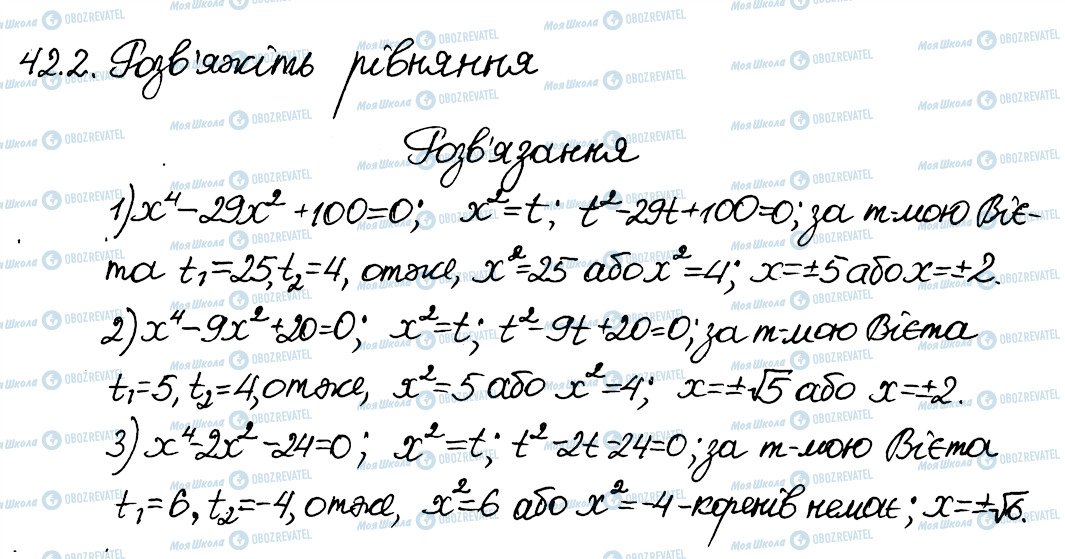 42.2. Розв'яжіть рівняння
Розв'язання
1) x⁴-29x²+100=0; x²=t; t²-29t+100=0; за т-мою Віє-
та t₁=25, t₂=4, отже, x²=25 або x²=4; x=±5 або x=±2.
2) x⁴-9x²+20=0; x²=t; t²-9t+20=0; за т-мою Вієта
t₁=5, t₂=4, отже, x²=5 або x²=4; x=±√5 або x=±2.
3) x⁴-2x²-24=0; x²=t; t²-2t-24=0; за т-мою Вієта
t₁=6, t₂=-4, отже, x²=6 або x²=-4 - коренів немає; x=±√6.